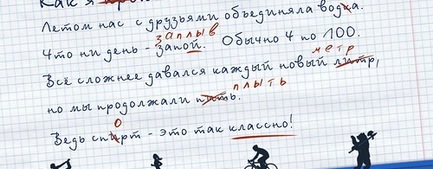 Как я
Летом нас с друзьями объединяла водка.
заплыв
Что ни день - запой. Обычно 4 по 100.
метр
Всё сложнее давался каждый новый литр,
плыть
но мы продолжали пить.
о
Ведь спирт - это так классно!